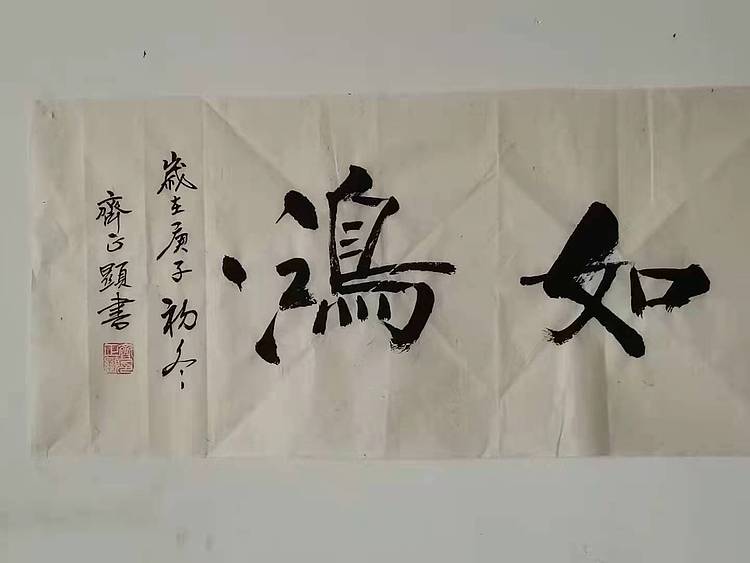 如鴻
歲在庚子初冬
齊正顯書